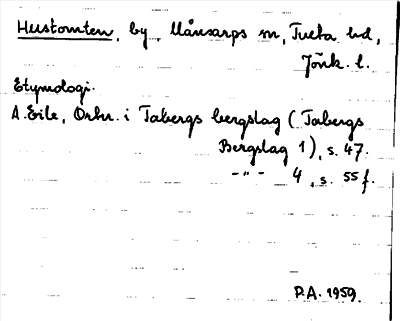 Hustomten, by, Månsarps sn, Tveta hd,
Jönk. l.
Etymologi.
A. Eile, Ortn. i Tabergs bergslag (Tabergs
Bergslag 1), s. 47.
-"- 4, s. 55 f.
P.A. 1959.